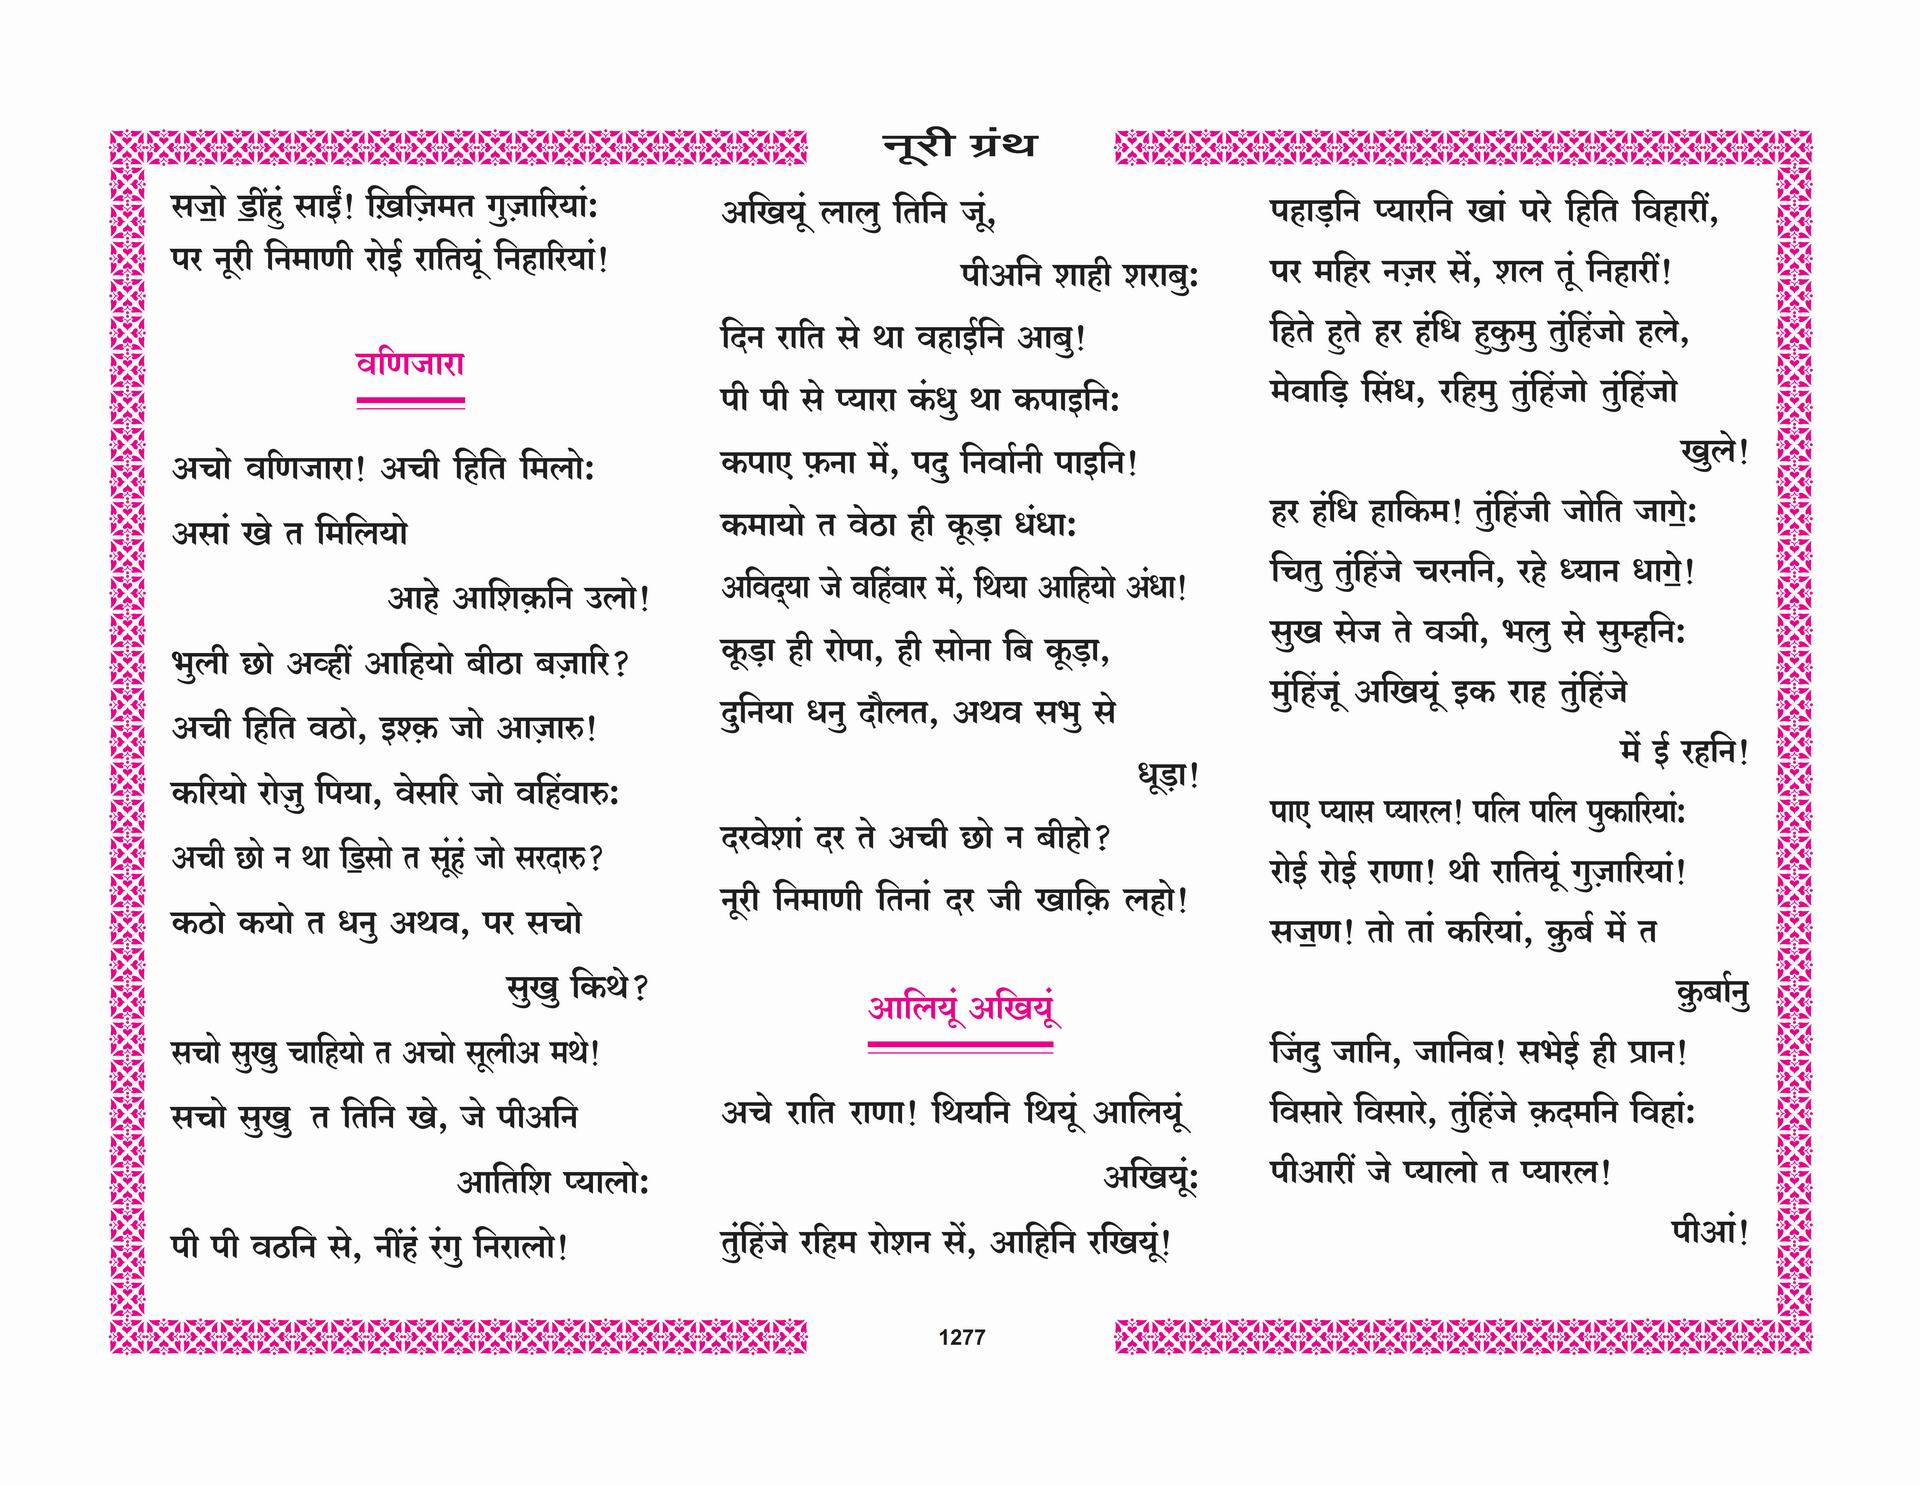 नूरी ग्रंथ
सॼो ॾींहुं साईं! ख़िज़िमत गुज़ारियां:
पर नूरी निमाणी रोई रातियूं निहारियां!
वणिजारा
अचो वणिजारा! अची हिति मिलो:
असां खे त मिलियो
आहे आशिक़नि उलो!
भुली छो अव्हीं आहियो बीठा बज़ारि?
अची हिति वठो, इश्क़ जो आज़ारु!
करियो रोज़ु पिया, वेसरि जो वहिंवारु:
अची छो न था ॾिसो त सूंहं जो सरदारु?
कठो कयो त धनु अथव, पर सचो
सुखु किथे?
सचो सुखु चाहियो त अचो सूलीअ मथे!
सचो सुखु त तिनि खे, जे पीअनि
आतिशि प्यालो:
पी पी वठनि से, नींहं रंगु निरालो!
अखियूं लालु तिनि जूं,
पीअनि शाही शराबु:
दिन राति से था वहाईनि आबु!
पी पी से प्यारा कंधु था कपाइनि:
कपाए फ़ना में, पदु निर्वानी पाइनि!
कमायो त वेठा ही कूड़ा धंधा:
अविद्‌या जे वहिंवार में, थिया आहियो अंधा!
कूड़ा ही रोपा, ही सोना बि कूड़ा,
दुनिया धनु दौलत, अथव सभु से
धूड़ा!
दरवेशां दर ते अची छो न बीहो?
नूरी निमाणी तिनां दर जी खाक़ि लहो!
आलियूं अखियूं
अचे राति राणा! थियनि थियूं आलियूं
अखियूं:
तुंहिंजे रहिम रोशन सें, आहिनि रखियूं!
पहाड़नि प्यारनि खां परे हिति विहारीं,
पर महिर नज़र सें, शल तूं निहारीं!
हिते हुते हर हंधि हुकुमु तुंहिंजो हले,
मेवाड़ि सिंध, रहिमु तुंहिंजो तुंहिंजो
खुले!
हर हंधि हाकिम! तुंहिंजी जोति जाॻे:
चितु तुंहिंजे चरननि, रहे ध्यान धाॻे!
सुख सेज ते वञी, भलु से सुम्हनि:
मुंहिंजूं अखियूं इक राह तुंहिंजे
में ई रहनि!
पाए प्यास प्यारल! पलि पलि पुकारियां:
रोई रोई राणा! थी रातियूं गुज़ारियां!
सॼण! तो तां करियां, क़ुर्ब में त
क़ुर्बानु
जिंदु जानि, जानिब! सभेई ही प्रान!
विसारे विसारे, तुंहिंजे क़दमनि विहां:
पीआरीं जे प्यालो त प्यारल!
पीआं!
1277